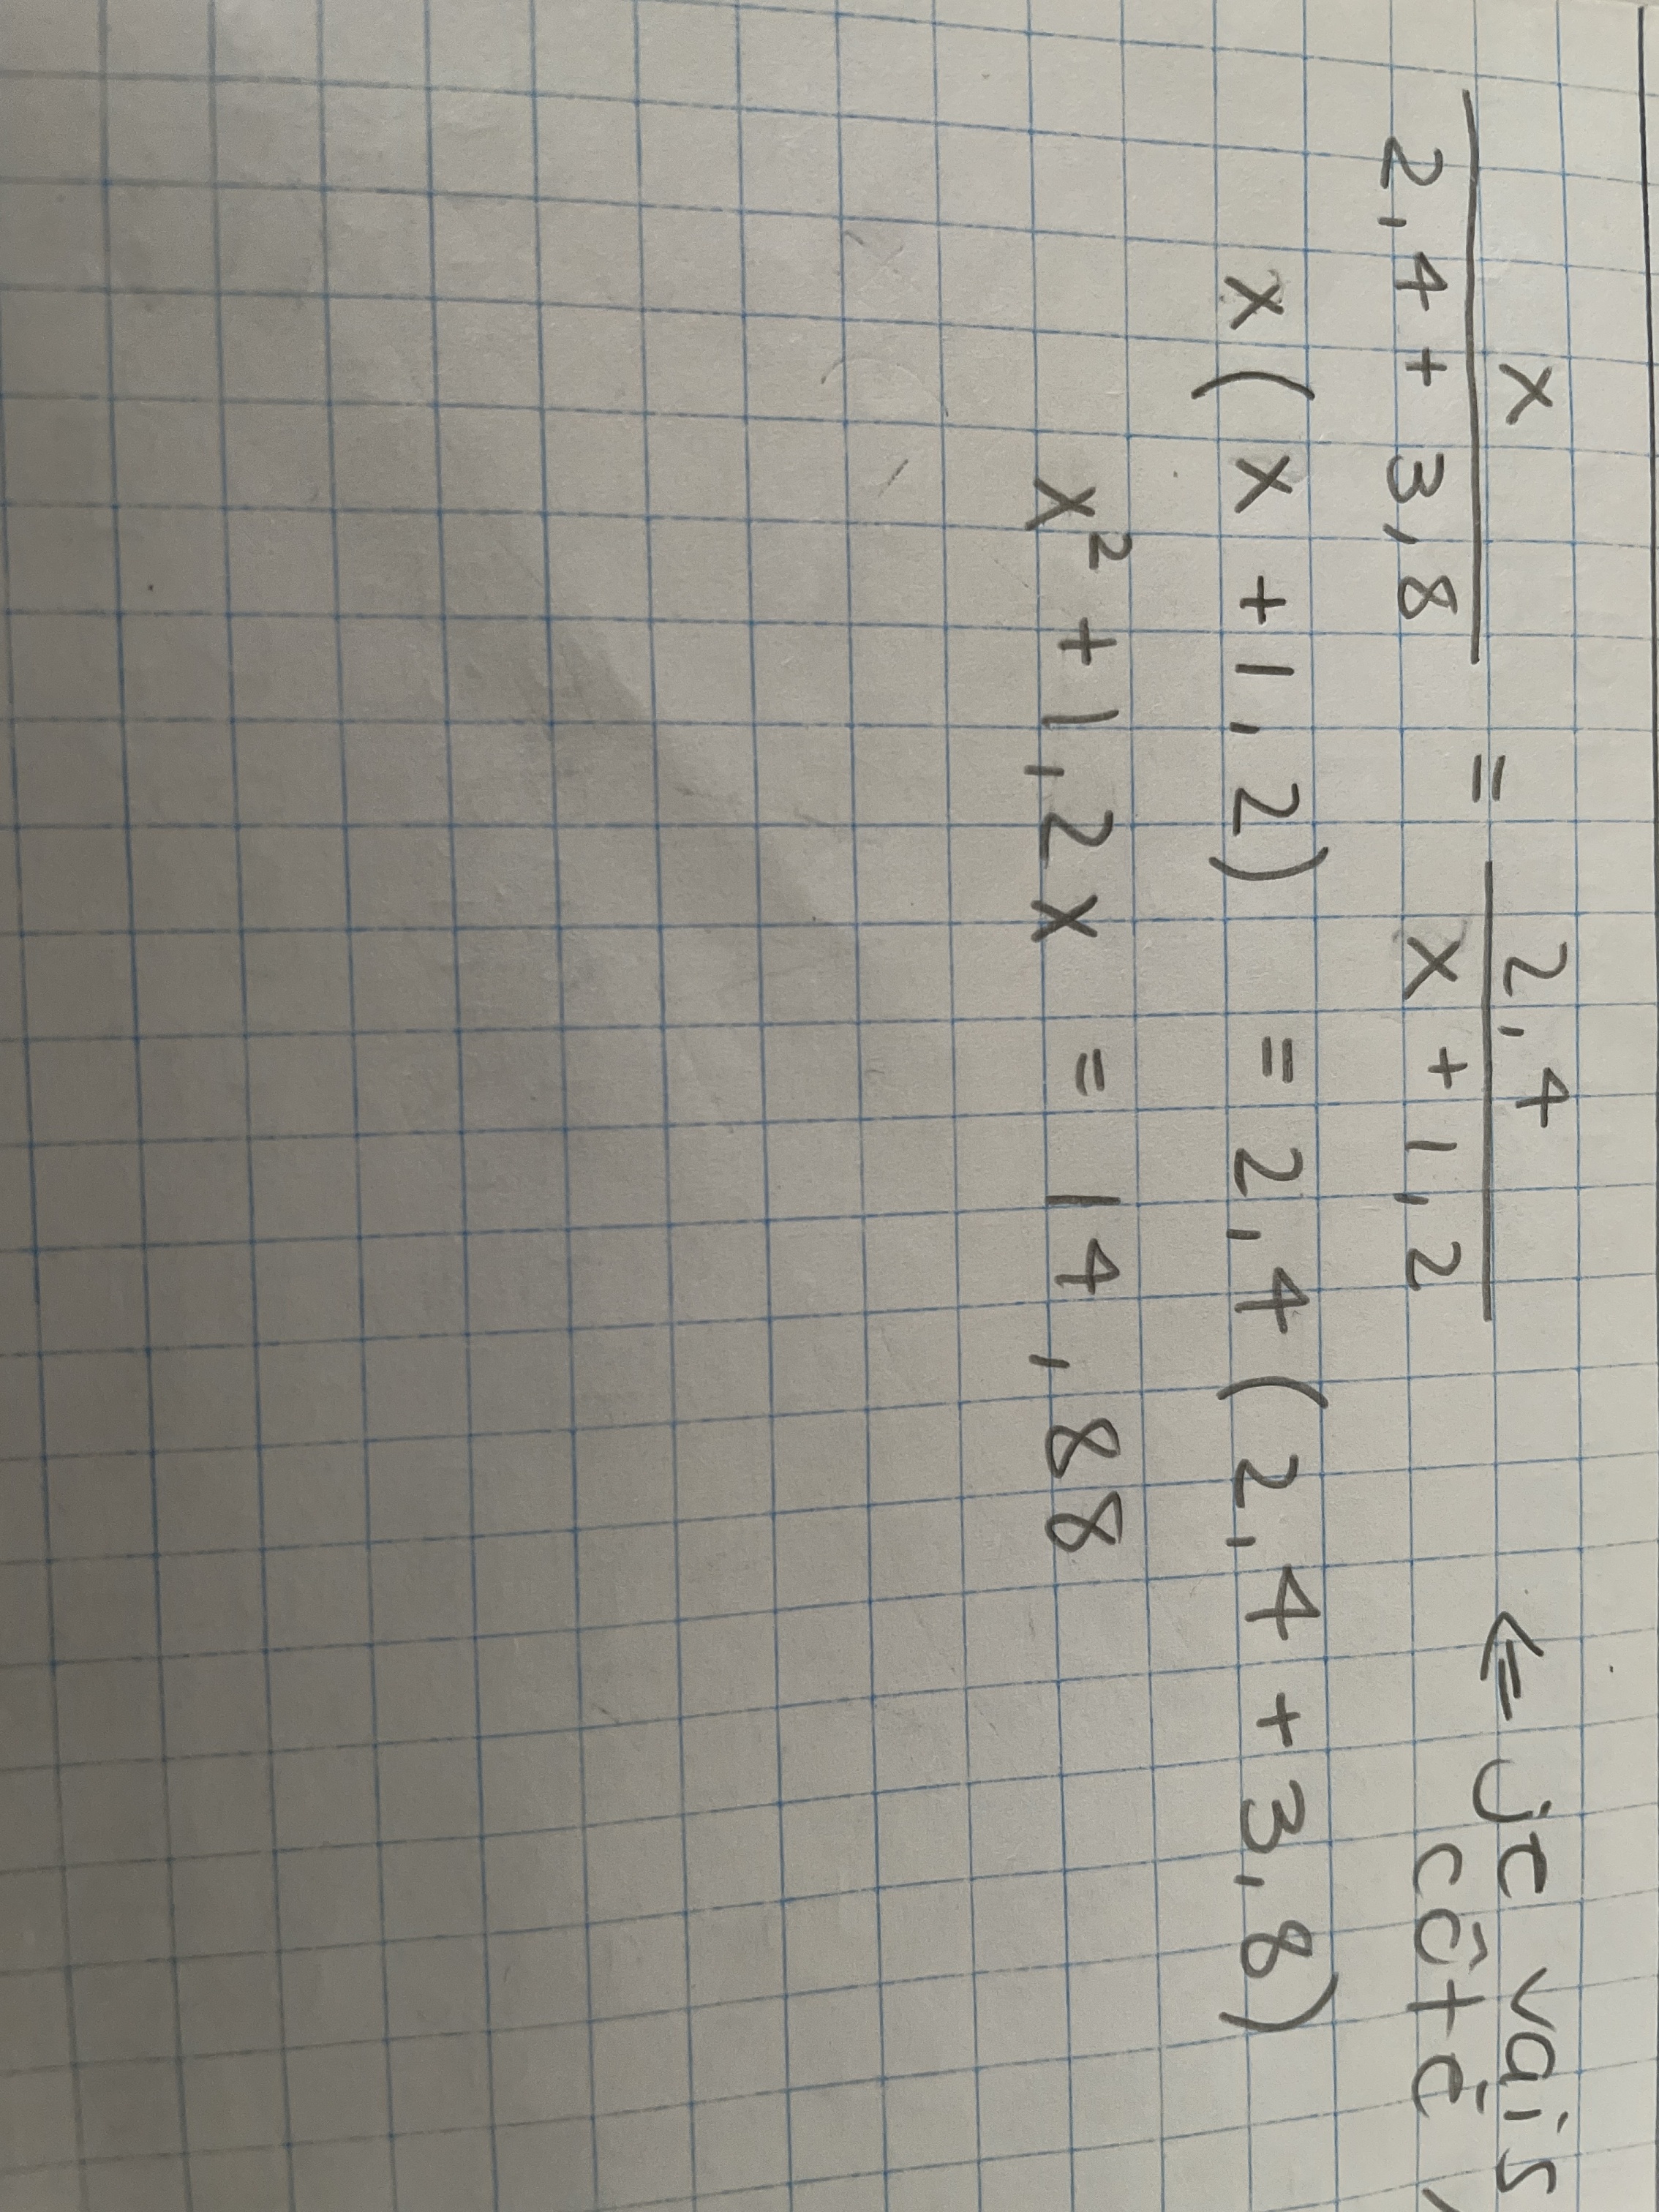 x / (2,4 + 3,8) = 2,4 / (x + 1,2) ⇐ je vais
côté
x(x + 1,2) = 2,4(2,4 + 3,8)
x² + 1,2x = 14,88